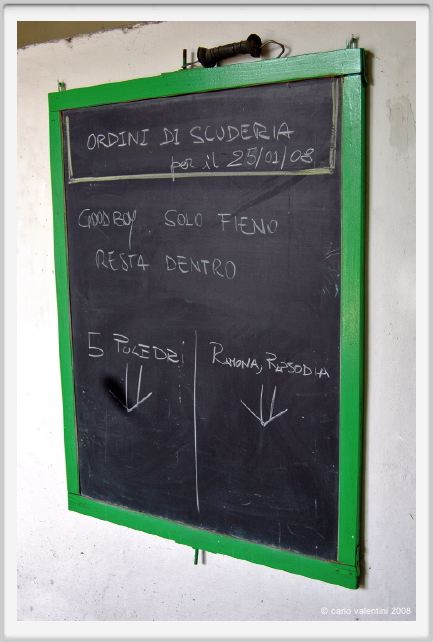 ORDINI DI SCUDERIA
per il 25/01/08
GOODBOY. SOLO FIENO
RESTA DENTRO
5 PULEDRI
RAMONA, RAPSODIA
© carlo valentini 2008